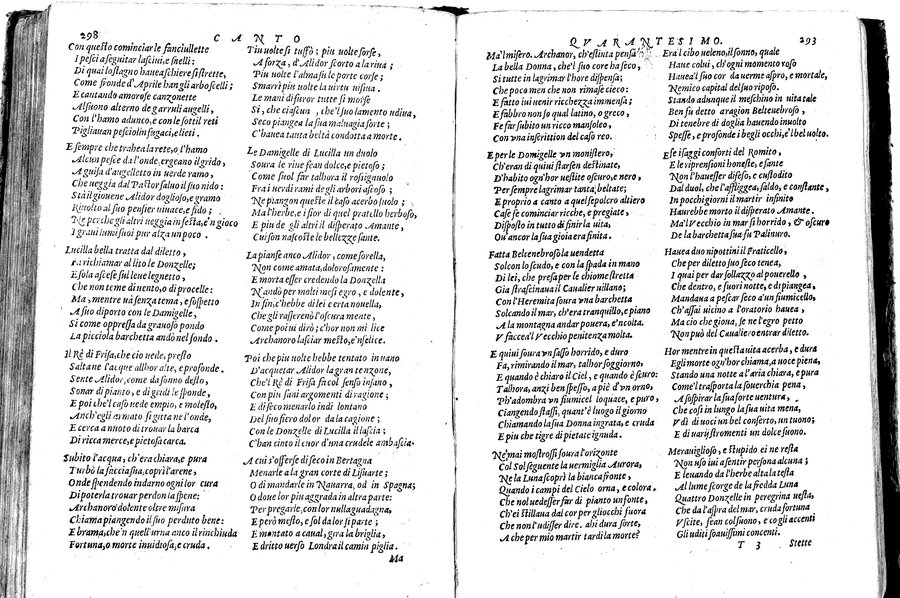 298
CANTO
Con questo cominciar le fanciullette
I pesci a seguitar lasciui, e snelli:
Di qual lo stagno hauea schiere sì strette,
Come fronde d'Aprile han gli arboscelli:
E cantando amorose canzonette
Al suono alterno de garruli augelli,
Con l'hamo adunco, e con le sottil reti
Pigliauan pesci o in fuga, e lieti.
E sempre che trahea la rete, o l'hamo
Alcun pesce da l'onde, ergeano il grido,
A guisa d'augelletto in uerde ramo,
Che ueggia dal Pastor saluo il suo nido:
Stà il giouene Alidor doglioso, e gramo
Riuolto al suo pensier uiuace, e fido;
Ne perche gli altri ueggia in festa, e'n gioco
I graui lumi suoi pur alza un poco.
Lucilla bella tratta dal diletto,
Fa richiamar al lito le Donzelle;
E sola ascese sul lieue legnetto,
Che non teme di uento, o di procelle:
Ma, mentre uà senza tema, e sospetto
A suo diporto con le Damigelle,
Si come oppressa da grauoso pondo
La picciola barchetta andò nel fondo.
Il Rè di Frisa, che ciò uede, presto
Salta ne l'acque allhor alte, e profonde.
Sente Alidor, come da sonno desto,
Sonar di pianto, e di gridi le sponde,
E poi che'l caso uede empio, e molesto,
Anch'egli armato si gitta ne l'onde,
E cerca a nuoto di trouar la barca
Di ricca merce, e pietosa carca.
Subito l'acqua, ch'era chiara, e pura
Turbò la faccia sua, coprì l'arene,
Onde spendendo indarno ogni lor cura
Di poterla trouar perdon la spene:
Archanoro dolente oltre misura
Chiama piangendo il suo perduto bene:
E brama, che'n quell'urna anco il rinchiuda
Fortuna, o morte inuidiosa, e cruda.
Tiu uolte si tuffò; piu uolte sorse,
A forza, d'Alidor scorto a la riua;
Piu uolte l'alma su le porte corse;
Smarrì piu uolte la uirtu uisiua.
Le mani di furor tutte si morse
Si, che ciascun, che'l suo lamento udiua,
Seco piangea la sua maluagia sorte;
C'hauea tanta beltà condotta a morte.
Le Damigelle di Lucilla un duolo
Soura le riue fean dolce, e pietoso;
Come suol far talhora il rossignuolo
Fra i uerdi rami degli arbori ascoso;
Ne piangon queste il caso acerbo solo;
Ma l'herbe, e i fior di quel pratello herboso,
E piu de gli altri il disperato Amante,
Cui son nascoste le bellezze sante.
La pianse anco Alidor, come sorella,
Non come amata, dolorosamente:
E morta esser credendo la Donzella
N'andò per molti mesi egro, e dolente,
In fin, c'hebbe di lei certa nouella,
Che gli rasserenò l'oscura mente,
Come poi ui dirò; c'hor non mi lice
Archanoro lasciar mesto, e'nfelice.
Poi che piu uolte hebbe tentato in uano
D'acquetar Alidor la gran tenzone,
Che'l Rè di Frisa fà col senso insano,
Con piu sani argomenti di ragione;
E di seco menarlo indi lontano
Del suo fiero dolor da la cagione;
Con le Donzelle di Lucilla il lascia;
C'han cinto il cuor d'una crudele ambascia.
A cui s'offerse di seco in Bertagna
Menarle a la gran corte di Lisuarte;
O di mandarle in Nauarra, od in Spagna;
O doue lor piu aggrada in altra parte:
Per pregarle, con lor nulla guadagna,
E però mesto, e sol da lor si parte;
E montato a caual, gira la briglia,
E dritto uerso Londra il camin piglia.
Ma
QVARANTESIMO.
293
Ma'l misero Archanor, ch'estinta pensa
La bella Donna, che'l suo cor ha seco,
Si tutte in lagrimar l'hore dispensa;
Che poco men che non rimase cieco:
E fatto iui uenir ricchezza immensa;
E fabbro non sol qual latino, o greco,
Fe far subito un ricco mansoleo,
Con vna inscrittion del caso reo.
E per le Damigelle vn monistero,
Ch'eran di quiui starsen destinate,
D'habito ogn'hor uestite oscuro, e nero,
Per sempre lagrimar tanta beltate;
E proprio a canto a quel sepolcro altiero
Case fè cominciar ricche, e pregiate,
Disposto in tutto di finir la uita,
Qu'ancor la sua gioia era finita.
Fatta Beltenebroso la uendetta
Sol con lo scudo, e con la spada in mano
Di lei, che presa per le chiome stretta
Già strascinaua il Caualier uillano;
Con l'Heremita soura vna barchetta
Solcando il mar, ch'era tranquillo, e piano
A la montagna andar pouera, e'ncolta.
V faccea'l Vecchio penitenza molta.
E quiui soura vn sasso horrido, e duro
Fa, rimirando il mar, talhor soggiorno,
E quando è chiaro il Ciel, e quando è scuro:
Talhora, anzi ben spesso, a piè d'vn orno,
Ph'adombra vn fiumicel loquace, e puro,
Ciangendo stassi, quant'è luogo il giorno
Chiamando la sua Donna ingrata, e cruda
E piu che tigre di pietate ignuda.
Ne mai mostrossi soura l'orizonte
Col Sol seguente la uermiglia Aurora,
Ne la Luna scoprì la bianca fronte,
Quando i campi del Cielo orna, e colora,
Che nol uedesser far di pianto un fonte,
Ch'ei stillaua dal cor per gliocchi fuora
Che non l'udisser dire. ahi dura sorte,
A che per mio martir tardi la morte?
Era'l cibo ueleno, il sonno, quale
Haue colui, ch'ogni momento roso
Hauea'l suo cor da uerme aspro, e mortale,
Nemico capital del suo riposo.
Stando adunque il meschino in uita tale
Ben fu detto a ragion Beltenebroso,
Di tenebre di doglia hauendo inuolto
Spesse, e profonde i begli occhi, e'l bel uolto.
E se i saggi conforti del Romito,
E le riprensioni honeste, e sante
Non l'hauesser difeso, e custodito
Dal duol, che l'affligge a, saldo, e constante,
In pochi giorni il martir infinito
Haurebbe morto il disperato Amante.
Ma'l Vecchio in mar sì horrido, & oscuro
De la barchetta sua fu Palinuro.
Hauea duo nipottini il Fraticello,
Che per diletto suo seco tenea,
I quai per dar sollazzo al pouerello,
Che dentro, e fuori notte, e dì piangea,
Mandaua a pescar seco a'un fiumicello,
Ch'assai uicino a l'oratorio hauea,
Ma ciò che gioua, se ne l'egro petto
Non può del Caualiero entrar diletto.
Hor mentre in questa uita acerba, e dura
Egli morte ogn'hor chiama, a uoce piena,
Stando una notte a l'aria chiara, e pura
Come'l trasporta la souerchia pena,
A sospirar la sua forte uentura,
Che così in lungo la sua uita mena,
Vdì di uoci un bel conserto, un tuono;
E di uarij stromenti un dolce suono.
Marauiglioso, e stupido ei ne resta
Non uso iui a sentir persona alcuna;
E leuando da l'herbe alta la testa
Al lume scorge de la fredda Luna
Quattro Donzelle in peregrina uesta,
Che da l'aspra del mar, cruda fortuna
Vscite, fean col suono, e co gli accenti
Gli uditi soauissimi concenti.
T 3 Stette